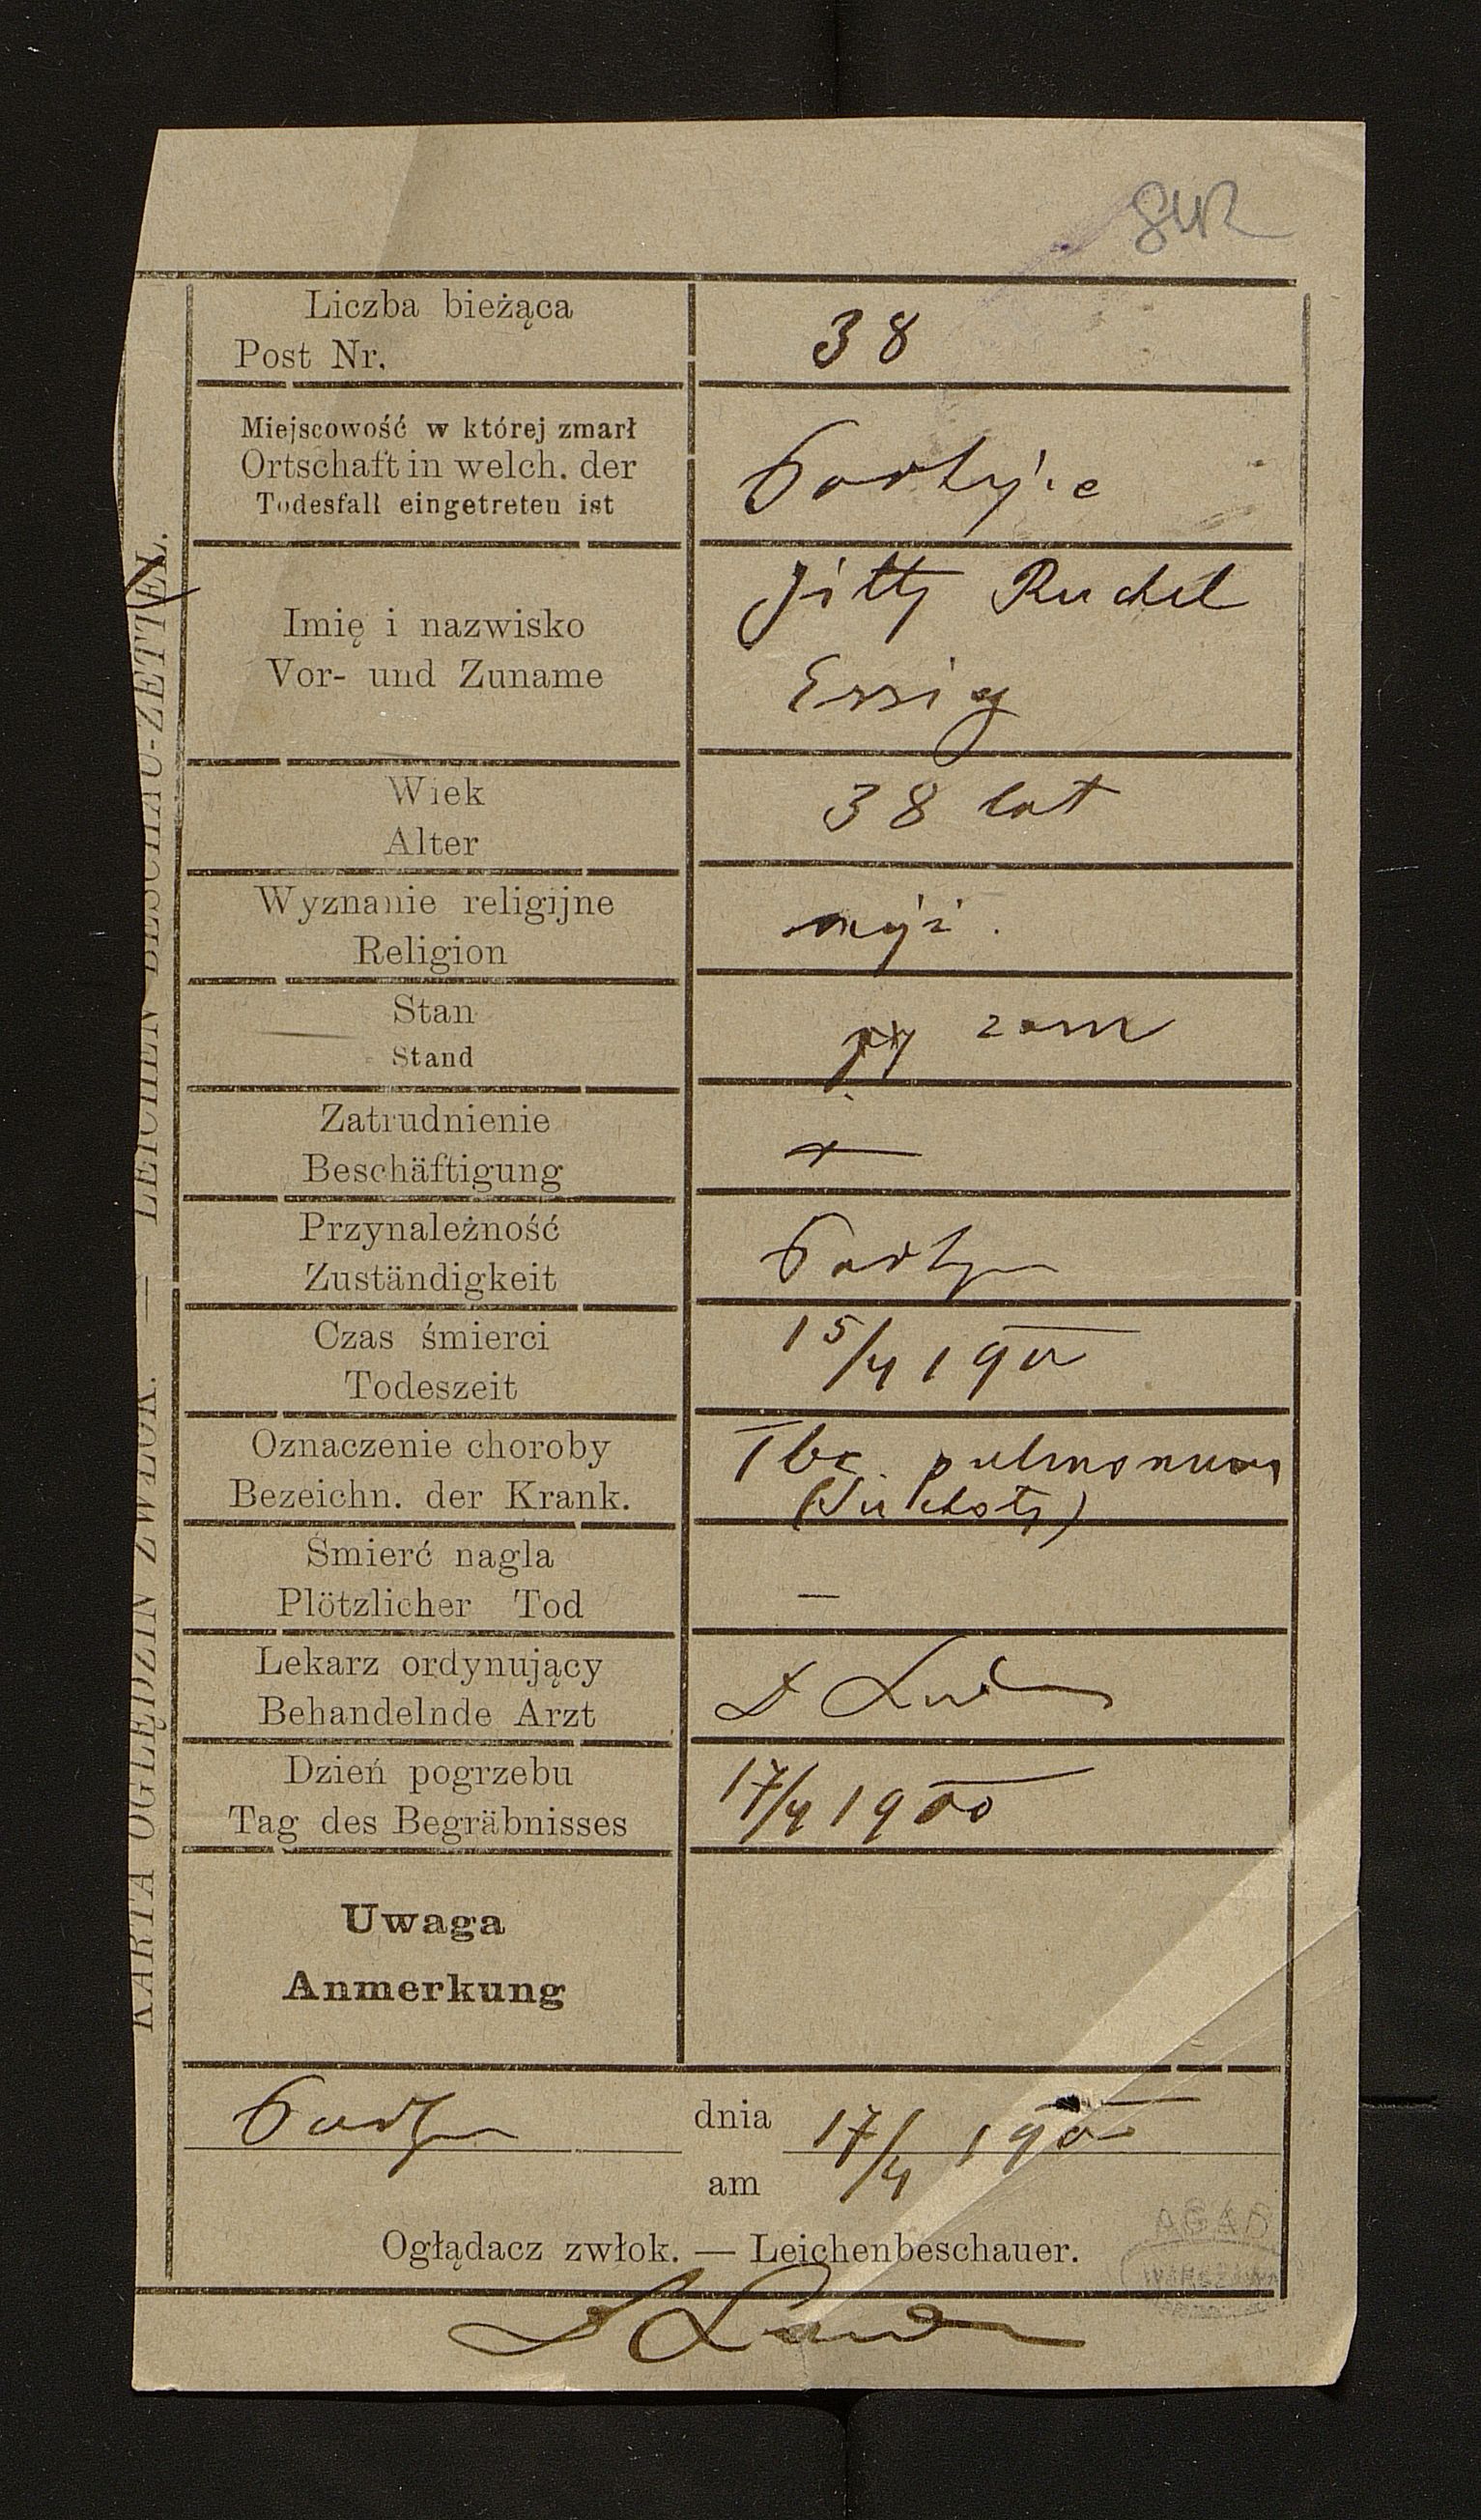 842
Liczba bieżąca
Post Nr.
38
Miejscowość w której zmarł
Ortschaft in welch. der
Todesfall eingetreten ist
Imię i nazwisko
Vor- und Zuname
Jitty Ruchel
Essig
Wiek
Alter
38 lat
Wyznanie religijne
Religion
mojż.
Stan
Stand
zam
Zatrudnienie
Beschäftigung
Przynależność
Zuständigkeit
Czas śmierci
Todeszeit
15/4 1900
Oznaczenie choroby
Bezeichn. der Krank.
Tbc. pulmonum
(Suchoty)
Śmierć nagla
Plötzlicher Tod
—
Lekarz ordynujący
Behandelnde Arzt
Dzień pogrzebu
Tag des Begräbnisses
17/4 1900
Uwaga
Anmerkung
dnia
am
17/4 1900
Oglądacz zwłok. — Leichenbeschauer.
KARTA OGLĘDZIN ZWŁOK. — LEICHEN-BESCHAU-ZETTEL.
AGAD
WARSZAWA